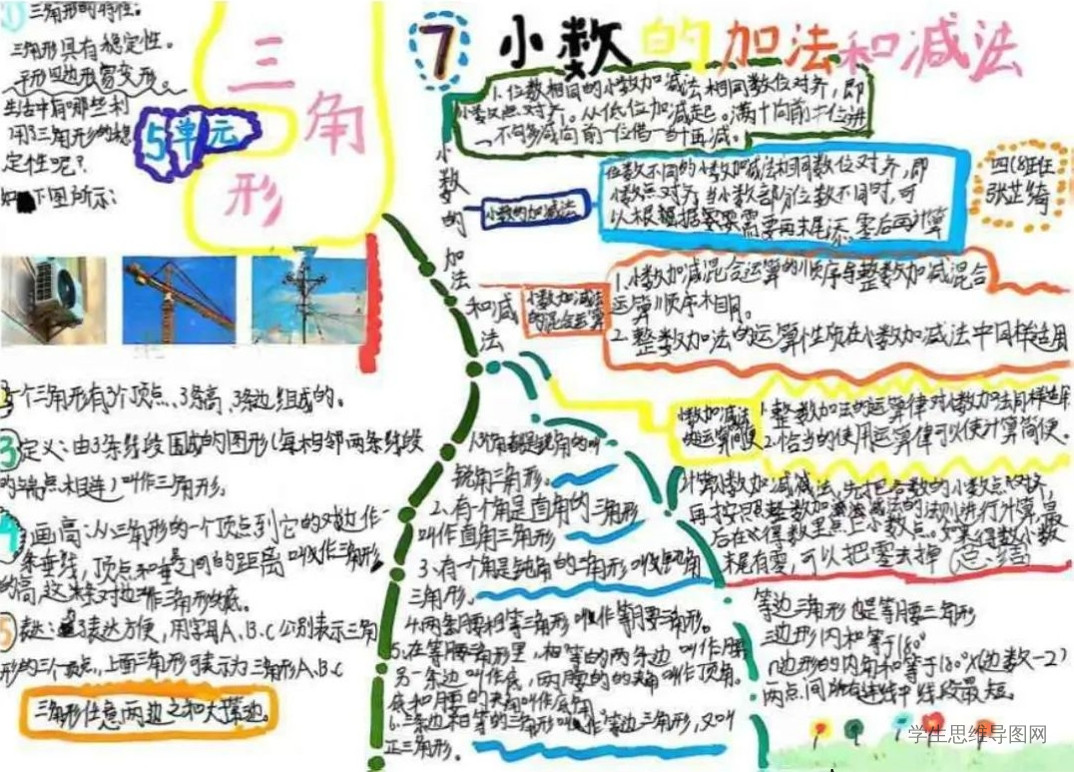 三角形的特性:
三角形具有稳定性。
平形四边形易变形。
生活中有哪些利
用三角形的稳
定性呢?
如下图所示:
三
角
形
5单元
个三角形有3个顶点、3条高、3条边组成的。
3定义:由3条线段围成的图形(每相邻两条线段
的端点相连)叫作三角形。
4画高:从三角形的一个顶点到它的对边作一
条垂线,顶点和垂足间的距离叫作三角形
的高,这条对边叫作三角形的底。
5表达:表达方便,用字母A、B、C分别表示三角
形的三个顶点,上面三角形可表示为三角形A、B、C
三角形任意两边之和大于第三边。
7 小数的加法和减法
1.位数相同的小数加减法相同数位对齐,即
小数点对齐。从低位加减起。满十向前一位进
一,不够减向前一位借一当十再减。
小数的加法和减法
小数的加减法
位数不同的小数加减法相同数位对齐,即
小数点对齐,当小数部分位数不同时,可
以根据需要需要再末尾添零后再计算
四(8)班
张芷绮
小数加减法
的混合运算
1.小数加减混合运算的顺序与整数加减混合
运算顺序相同。
2.整数加法的运算性质在小数加减法中同样适用
小数加减法
的运算简便
1.整数加法的运算律对小数加法同样适用
2.恰当的使用运算律可以使计算简便。
计算小数加减法,先把各数的小数点对齐,
再按照整数加减法的法则进行计算,最
后在得数里点上小数点。如果得数小数
末尾有零,可以把零去掉(总结)
1.3个角都是锐角的叫
锐角三角形。
2.有一个角是直角的三角形
叫作直角三角形
3.有一个角是钝角的三角形叫钝角
三角形。
4.两条腰相等三角形叫作等腰三角形。
5.在等腰三角形里,相等的两条边叫作腰
另一条边叫作底,两腰的的夹角叫作顶角。
底和腰的夹角叫作底角
6.三条边相等的三角形叫作等边三角形,又叫
正三角形。
等边三角形也是等腰三角形
三边形内和等于180°
n边形的内角和等于180°×(边数-2)
两点间所有连线中线段最短。
学生思维导图网